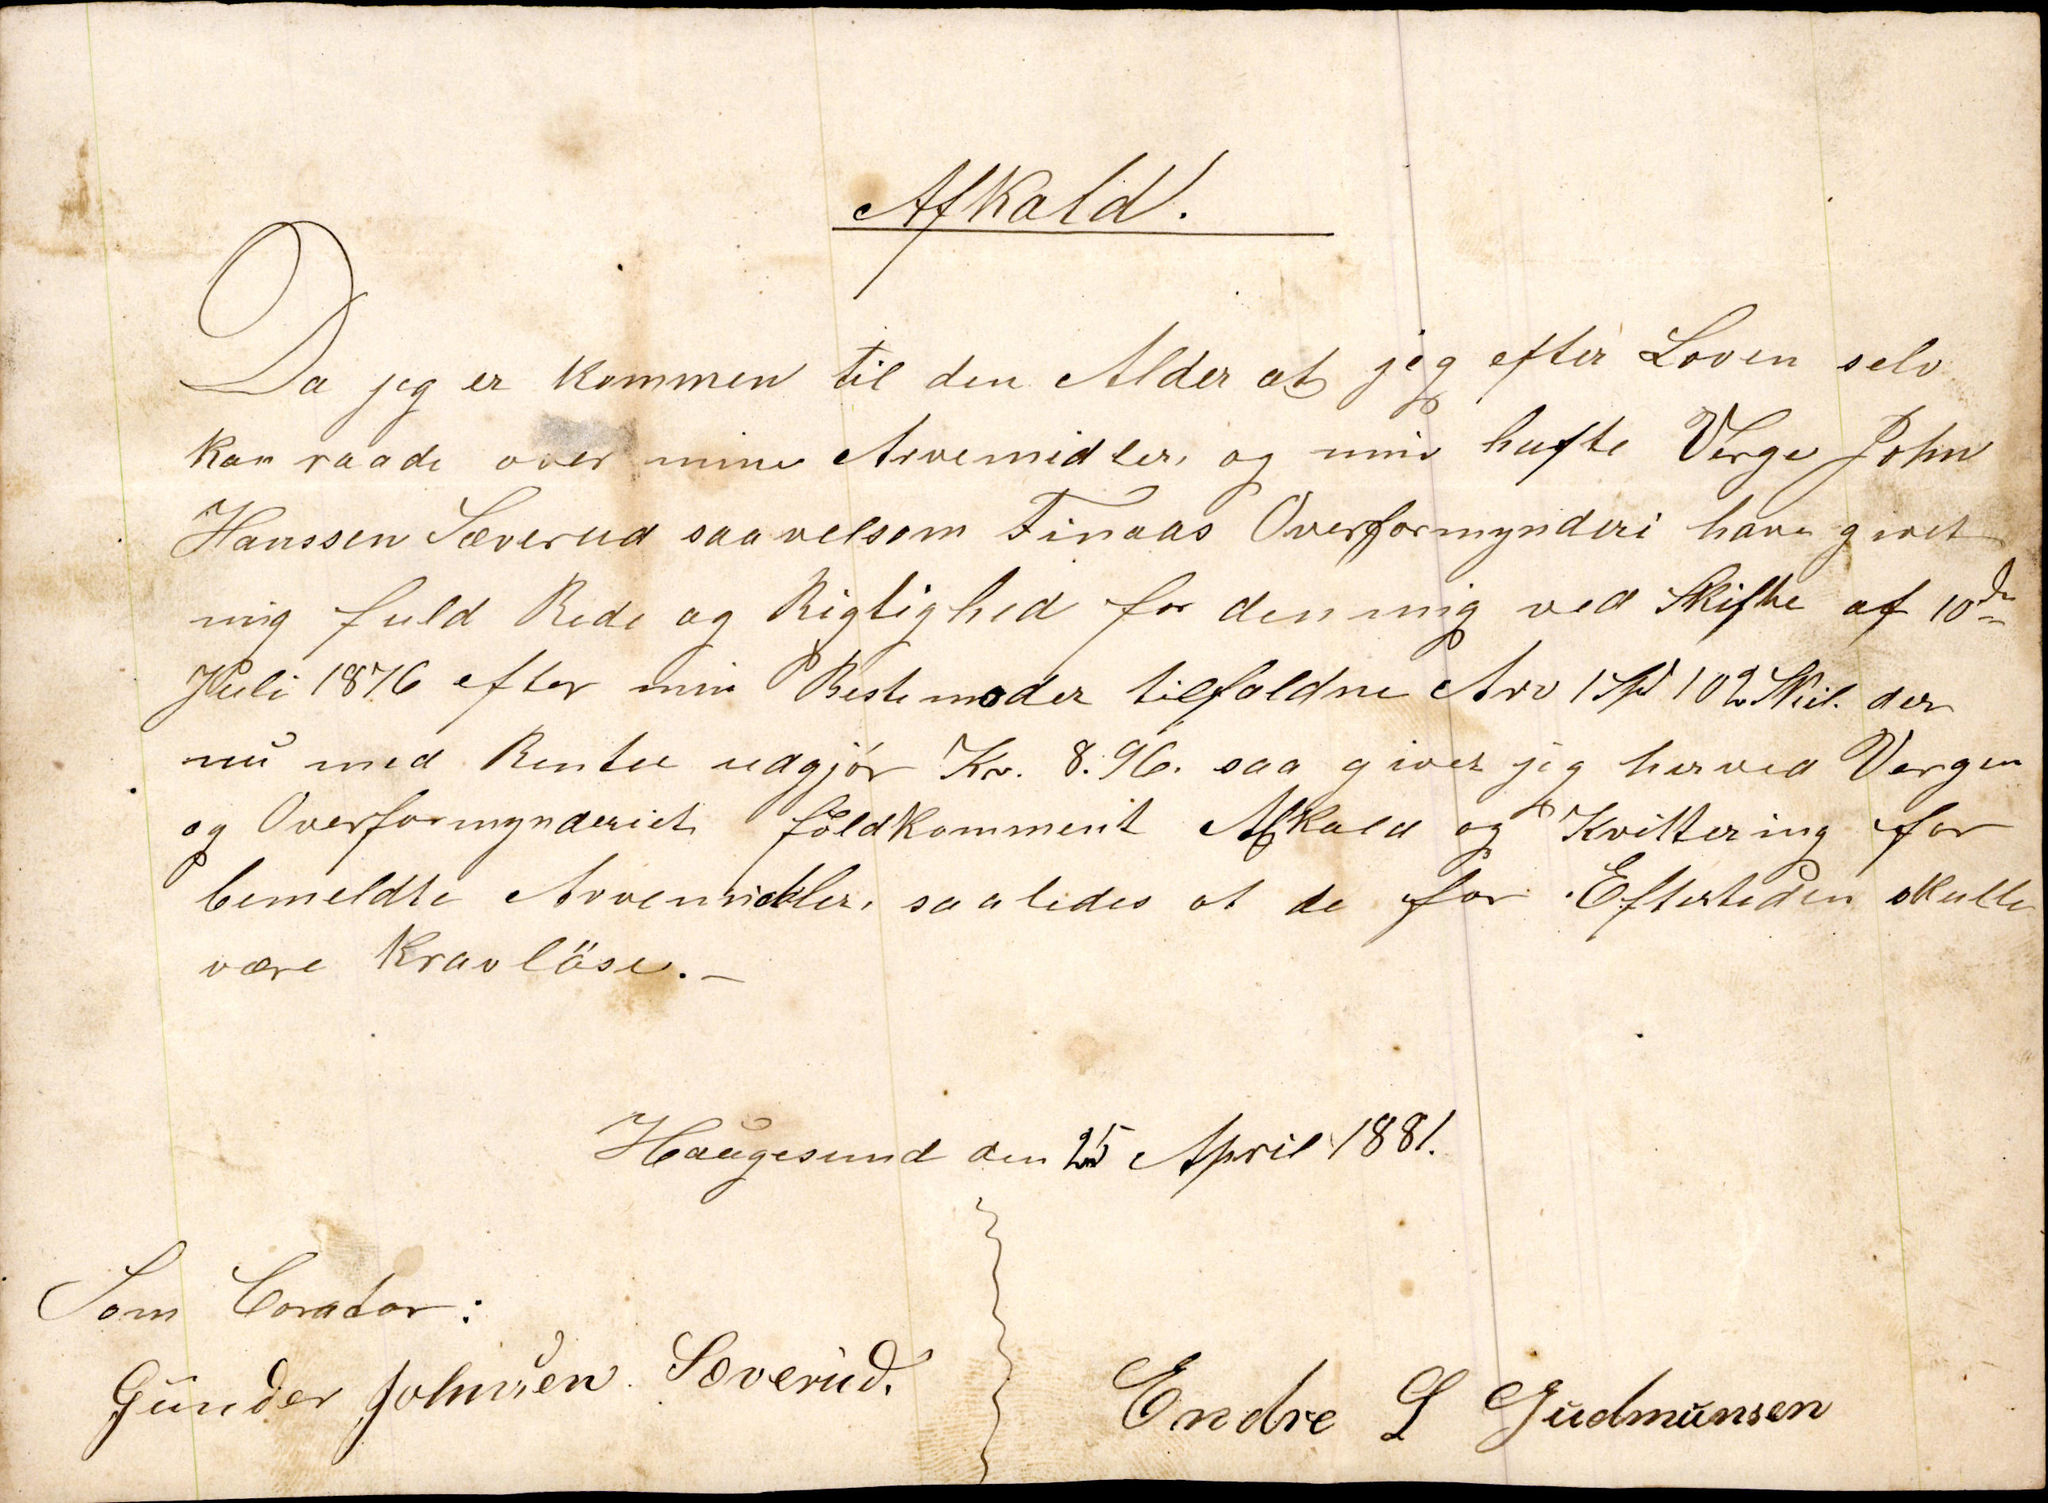 Afkald.
Da jeg er kommen til den Alder at jeg efter Loven selv
kan raade over mine Arvemidler, og min hafte Verge John
Hanssen Sæverud saavelsom Finaas Overformynderi have givet
mig fuld Rede og Rigtighed for den mig ved Skifte af 10de
Juli 1876 efter min Bestemoder tilfaldne Arv 1 Spd 102 Skil. der
nu med Renter udgjør Kr. 8.96. saa giver jeg herved Vergen
og Overformynderiet foldkomment Afkald og Kvittering for
bemeldte Arvemidler, saaledes at de for Eftertiden skulle
være Kravlöse.-
Haugesund den 25 April 1881.
Som Corator:
Gunder Johnsen Sæverud.
Endre L Gudmunsen